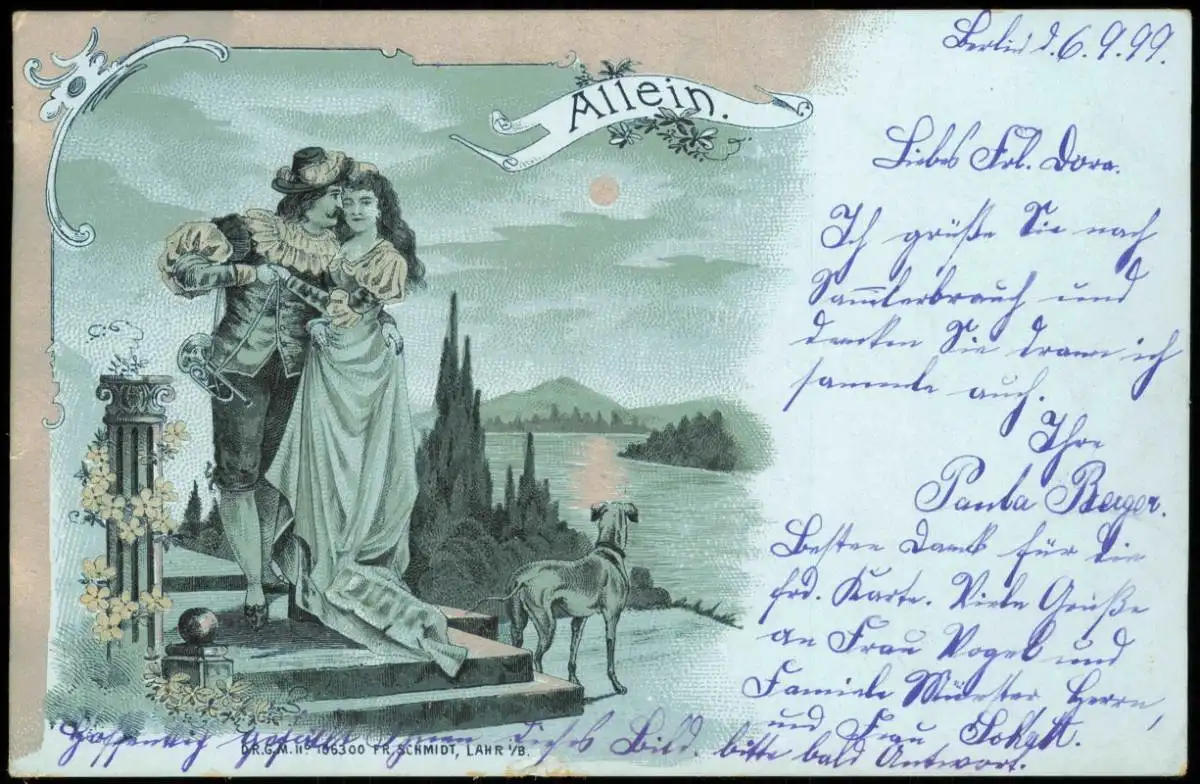 Berlin d. 6.9.99.
Allein.
Liebes Frl. Dora.
Ich grüße Sie nach
Sammlerbrauch und
denken Sie dran ich
sammle auch.
Ihre
Paula Berger.
Besten Dank für die
frd. Karte. Viele Grüße
an Frau Vogel und
Familie Münster, Herrn
und Frau
Hoffentlich gefällt Ihnen dieses Bild. bitte bald Antwort.
D.R.G.M. No 106300 FR. SCHMIDT, LAHR i/B.